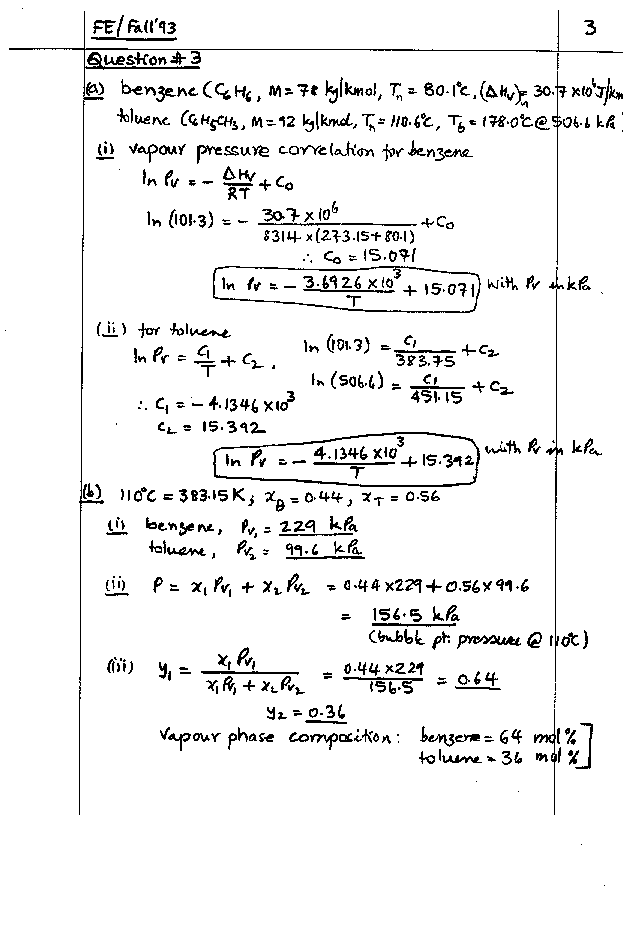 FE/Fall '93 3
Question #3
(a) benzene (C6H6, M = 78 kg/kmol, Tn = 80.1°C, (ΔHv)n = 30.7 x10^6 J/km
toluene (C6H5CH3, M = 92 kg/kmol, Tn = 110.6°C, Tb = 178.0°C @ 506.6 kPa)
(i) vapour pressure correlation for benzene
ln Pv = - ΔHv/RT + C0
ln (101.3) = - 30.7 x 10^6 / 8314 x (273.15 + 80.1) + C0
∴ C0 = 15.071
ln Pv = - 3.6926 x 10^3 / T + 15.071 with Pv in kPa
(ii) for toluene
ln Pv = C1/T + C2 , ln (101.3) = C1/383.75 + C2
ln (506.6) = C1/451.15 + C2
∴ C1 = - 4.1346 x10^3
C2 = 15.392
ln Pv = - 4.1346 x10^3 / T + 15.392 with Pv in kPa
(b) 110°C = 383.15 K; xB = 0.44, xT = 0.56
(i) benzene, Pv1 = 229 kPa
toluene, Pv2 = 99.6 kPa
(ii) P = x1 Pv1 + x2 Pv2 = 0.44 x 229 + 0.56 x 99.6
= 156.5 kPa
(bubble pt. pressure @ 110°C)
(iii) y1 = x1 Pv1 / x1 Pv1 + x2 Pv2 = 0.44 x 229 / 156.5 = 0.64
y2 = 0.36
Vapour phase composition: benzene = 64 mol %
toluene = 36 mol %]